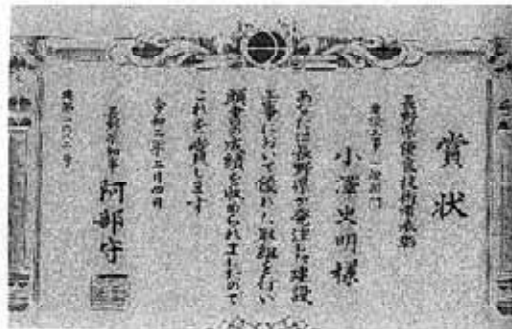 賞状
長野県優良技術者表彰
小澤史明様
あなたは長野県が発注した建設
工事において優れた取組を行い
顕著な成績を収められましたので
これを賞します
令和二年二月四日
長野県知事 阿部守一